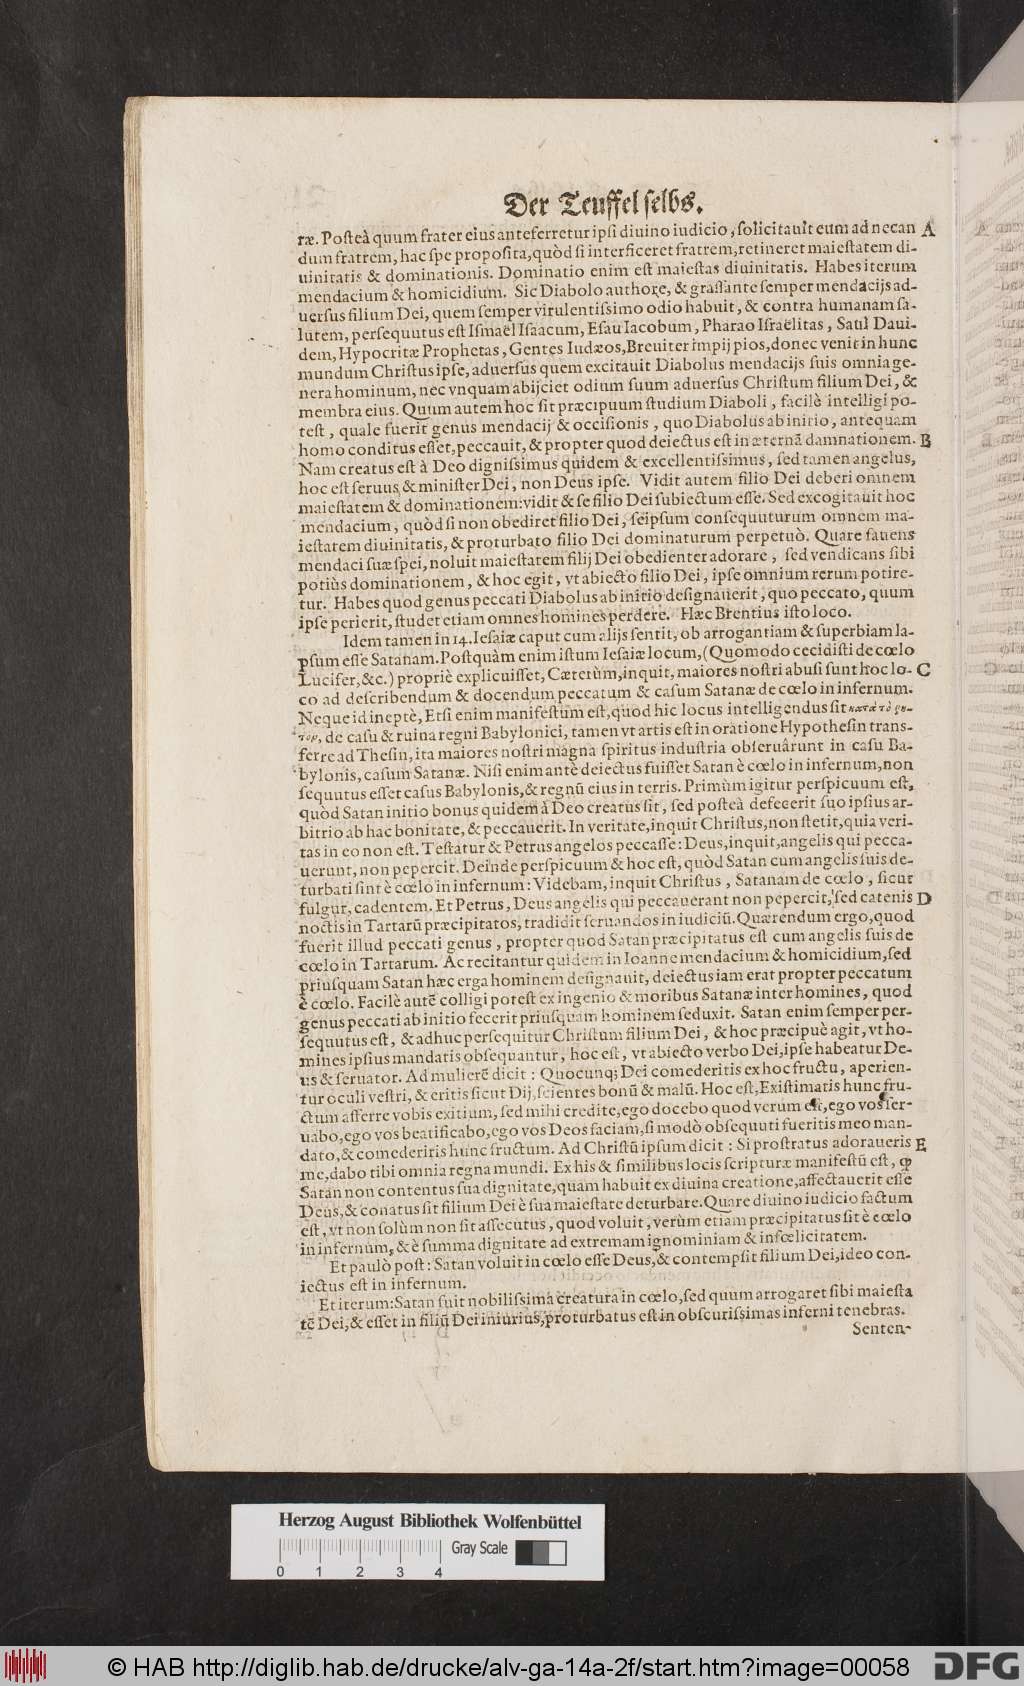 Der Teuffel ſelbs.
ræ. Poſteà quum frater eius anteferretur ipſi diuino iudicio, ſolicitauit eum ad necan A
dum fratrem, hac ſpe propoſita, quòd ſi interficeret fratrem, retineret maieſtatem di-
uinitatis & dominationis. Dominatio enim eſt maieſtas diuinitatis. Habes iterum
mendacium & homicidium. Sic Diabolo authore, & graſſante ſemper mendacijs ad-
uerſus filium Dei, quem ſemper virulentiſsimo odio habuit, & contra humanam ſa-
lutem, perſequutus eſt Iſmaël Iſaacum, Eſau Iacobum, Pharao Iſraëlitas, Saul Daui-
dem, Hypocritæ Prophetas, Gentes Iudæos, Breuiter impij pios, donec venit in hunc
mundum Chriſtus ipſe, aduerſus quem excitauit Diabolus mendacijs ſuis omnia ge-
nera hominum, nec vnquam abijciet odium ſuum aduerſus Chriſtum filium Dei, &
membra eius. Quum autem hoc ſit præcipuum ſtudium Diaboli, facilè intelligi po-
teſt, quale fuerit genus mendacij & occiſionis, quo Diabolus ab initio, antequam
homo conditus eſſet, peccauit, & propter quod deiectus eſt in æternã damnationem. B
Nam creatus eſt à Deo digniſsimus quidem & excellentiſsimus, ſed tamen angelus,
hoc eſt ſeruus & miniſter Dei, non Deus ipſe. Vidit autem filio Dei deberi omnem
maieſtatem & dominationem: vidit & ſe filio Dei ſubiectum eſſe. Sed excogitauit hoc
mendacium, quòd ſi non obediret filio Dei, ſeipſum conſequuturum omnem ma-
ieſtatem diuinitatis, & proturbato filio Dei dominaturum perpetuò. Quare fauens
mendaci ſuæ ſpei, noluit maieſtatem filij Dei obedienter adorare, ſed vendicans ſibi
potiùs dominationem, & hoc egit, vt abiecto filio Dei, ipſe omnium rerum potire-
tur. Habes quod genus peccati Diabolus ab initio deſignauerit, quo peccato, quum
ipſe perierit, ſtudet etiam omnes homines perdere. Hæc Brentius iſto loco.
Idem tamen in 14. Ieſaiæ caput cum alijs ſentit, ob arrogantiam & ſuperbiam la-
pſum eſſe Satanam. Poſtquàm enim iſtum Ieſaiæ locum, (Quomodo cecidiſti de cœlo
Lucifer, &c.) propriè explicuiſſet, Cæterùm, inquit, maiores noſtri abuſi ſunt hoc lo- C
co ad deſcribendum & docendum peccatum & caſum Satanæ de cœlo in infernum.
Neque id ineptè, Etſi enim manifeſtum eſt, quod hic locus intelligendus ſit κατὰ τὸ ῥη-
τὸν, de caſu & ruina regni Babylonici, tamen vt artis eſt in oratione Hypotheſin trans-
ferre ad Theſin, ita maiores noſtri magna ſpiritus induſtria obſeruârunt in caſu Ba-
bylonis, caſum Satanæ. Niſi enim antè deiectus fuiſſet Satan è cœlo in infernum, non
ſequutus eſſet caſus Babylonis, & regnũ eius in terris. Primùm igitur perſpicuum eſt,
quòd Satan initio bonus quidem à Deo creatus ſit, ſed poſteà defecerit ſuo ipſius ar-
bitrio ab hac bonitate, & peccauerit. In veritate, inquit Chriſtus, non ſtetit, quia veri-
tas in eo non eſt. Teſtatur & Petrus angelos peccaſſe: Deus, inquit, angelis qui pecca-
uerunt, non pepercit. Deinde perſpicuum & hoc eſt, quòd Satan cum angelis ſuis de-
turbati ſint è cœlo in infernum: Videbam, inquit Chriſtus, Satanam de cœlo, ſicut
fulgur, cadentem. Et Petrus, Deus angelis qui peccauerant non pepercit, ſed catenis D
noctis in Tartarũ præcipitatos, tradidit ſeruandos in iudiciũ. Quærendum ergo, quod
fuerit illud peccati genus, propter quod Satan præcipitatus eſt cum angelis ſuis de
cœlo in Tartarum. Ac recitantur quidem in Ioanne mendacium & homicidium, ſed
priuſquam Satan hæc erga hominem deſignauit, deiectus iam erat propter peccatum
è cœlo. Facilè autẽ colligi poteſt ex ingenio & moribus Satanæ inter homines, quod
genus peccati ab initio fecerit priuſquam hominem ſeduxit. Satan enim ſemper per-
ſequutus eſt, & adhuc perſequitur Chriſtum filium Dei, & hoc præcipuè agit, vt ho-
mines ipſius mandatis obſequantur, hoc eſt, vt abiecto verbo Dei, ipſe habeatur De-
us & ſeruator. Ad mulierẽ dicit: Quocunq; Dei comederitis ex hoc fructu, aperien-
tur oculi veſtri, & eritis ſicut Dij, ſcientes bonũ & malũ. Hoc eſt, Exiſtimatis hunc fru-
ctum afferre vobis exitium, ſed mihi credite, ego docebo quod verum eſt, ego vos ſer-
uabo, ego vos beatificabo, ego vos Deos faciam, ſi modò obſequuti fueritis meo man-
dato, & comederitis hunc fructum. Ad Chriſtũ ipſum dicit: Si proſtratus adoraueris E
me, dabo tibi omnia regna mundi. Ex his & ſimilibus locis ſcripturæ manifeſtũ eſt, ꝙ
Satan non contentus ſua dignitate, quam habuit ex diuina creatione, affectauerit eſſe
Deus, & conatus ſit filium Dei è ſua maieſtate deturbare. Quare diuino iudicio factum
eſt, vt non ſolùm non ſit aſſecutus, quod voluit, verùm etiam præcipitatus ſit è cœlo
in infernum, & è ſumma dignitate ad extremam ignominiam & infœlicitatem.
Et paulò poſt: Satan voluit in cœlo eſſe Deus, & contempſit filium Dei, ideo con-
iectus eſt in infernum.
Et iterum: Satan fuit nobiliſsima creatura in cœlo, ſed quum arrogaret ſibi maieſta
tẽ Dei, & eſſet in filiũ Dei iniurius, proturbatus eſt in obſcuriſsimas inferni tenebras.
Senten-
Herzog August Bibliothek Wolfenbüttel
Gray Scale
0 1 2 3 4
© HAB http://diglib.hab.de/drucke/alv-ga-14a-2f/start.htm?image=00058 DFG